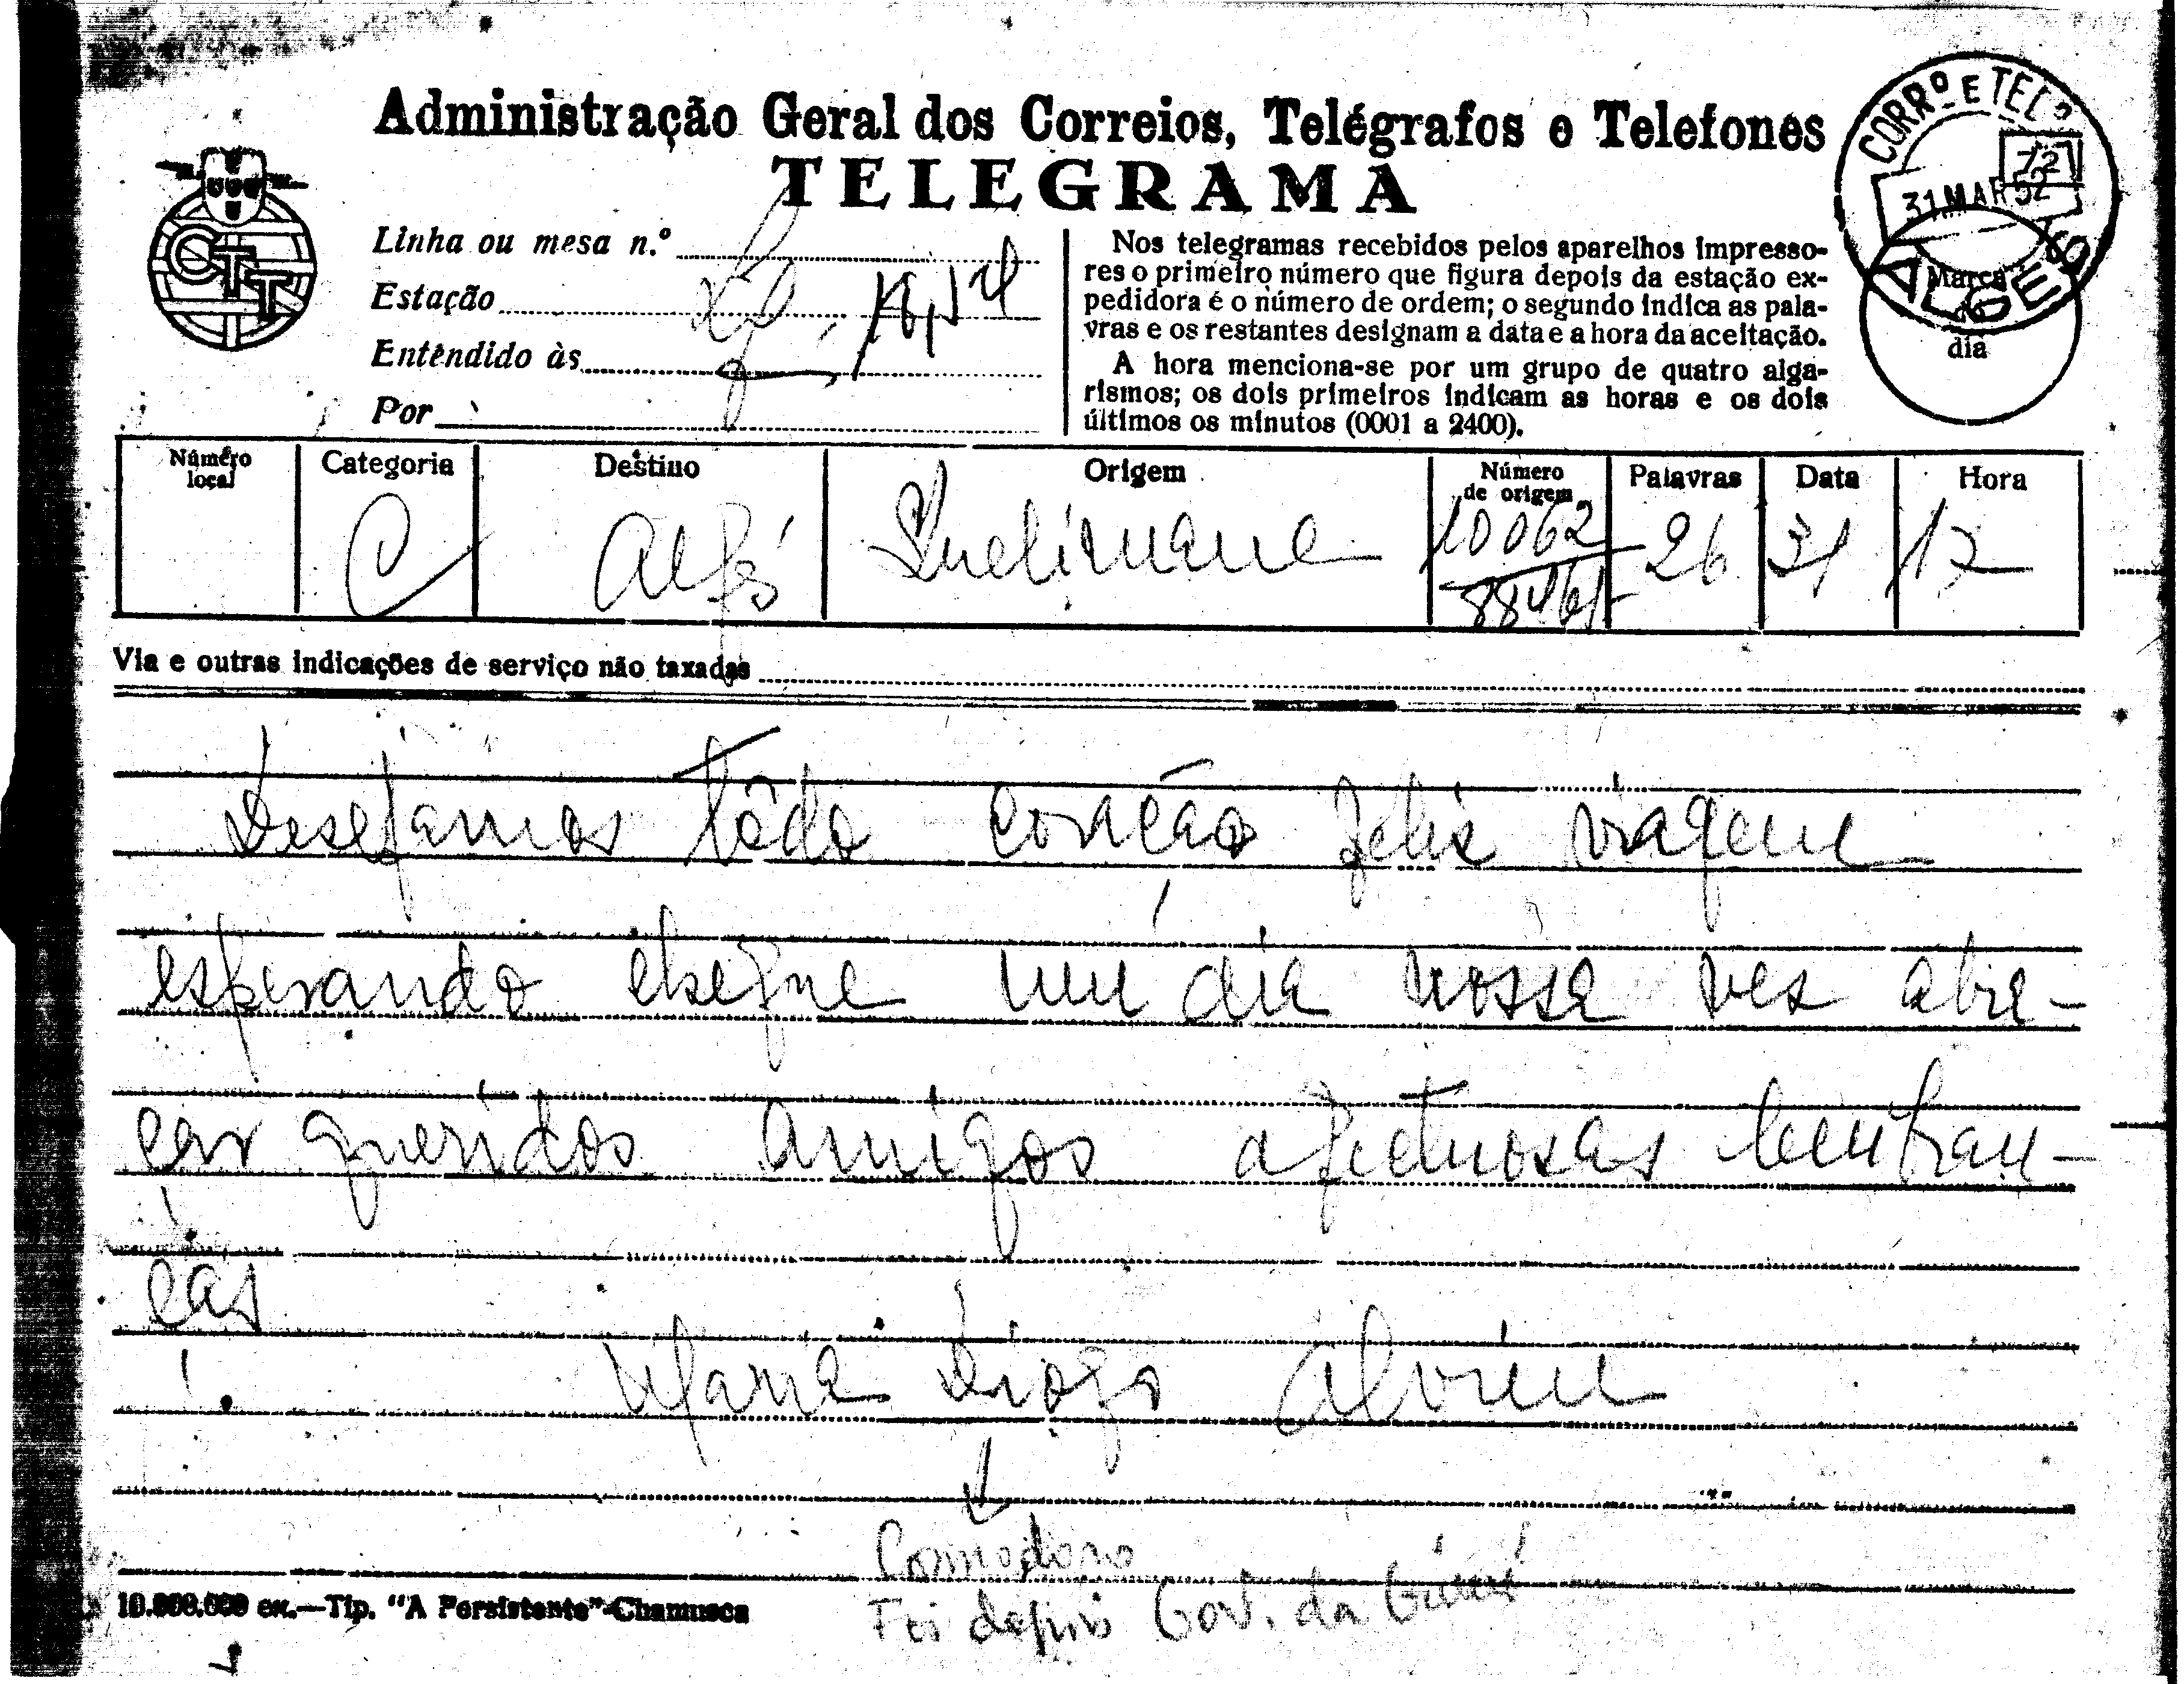 Administração Geral dos Correios, Telégrafos e Telefones
TELEGRAMA
CORRº E TELº
72
31 MAR 52
ALGÉS
Marca do dia
CTT
Linha ou mesa n.º
Estação
Entendido às
Por
Nos telegramas recebidos pelos aparelhos impresso-
res o primeiro número que figura depois da estação ex-
pedidora é o número de ordem; o segundo indica as pala-
vras e os restantes designam a data e a hora da aceitação.
A hora menciona-se por um grupo de quatro alga-
rismos; os dois primeiros indicam as horas e os dois
últimos os minutos (0001 a 2400).
Número local Categoria Destino Origem Número de origem Palavras Data Hora
C Algés Quelimane 10062 26 31 17
88461
Via e outras indicações de serviço não taxadas
Desejamos todo coração felis viagem
esperando chegue um dia nossa vez abra-
çar queridos amigos afectuosas lembran-
ças
Maria Diogo Alvim
Comodoro
Foi depois Gov. da Guiné
10.000.000 ex.—Tip. "A Persistente"-Chamusca